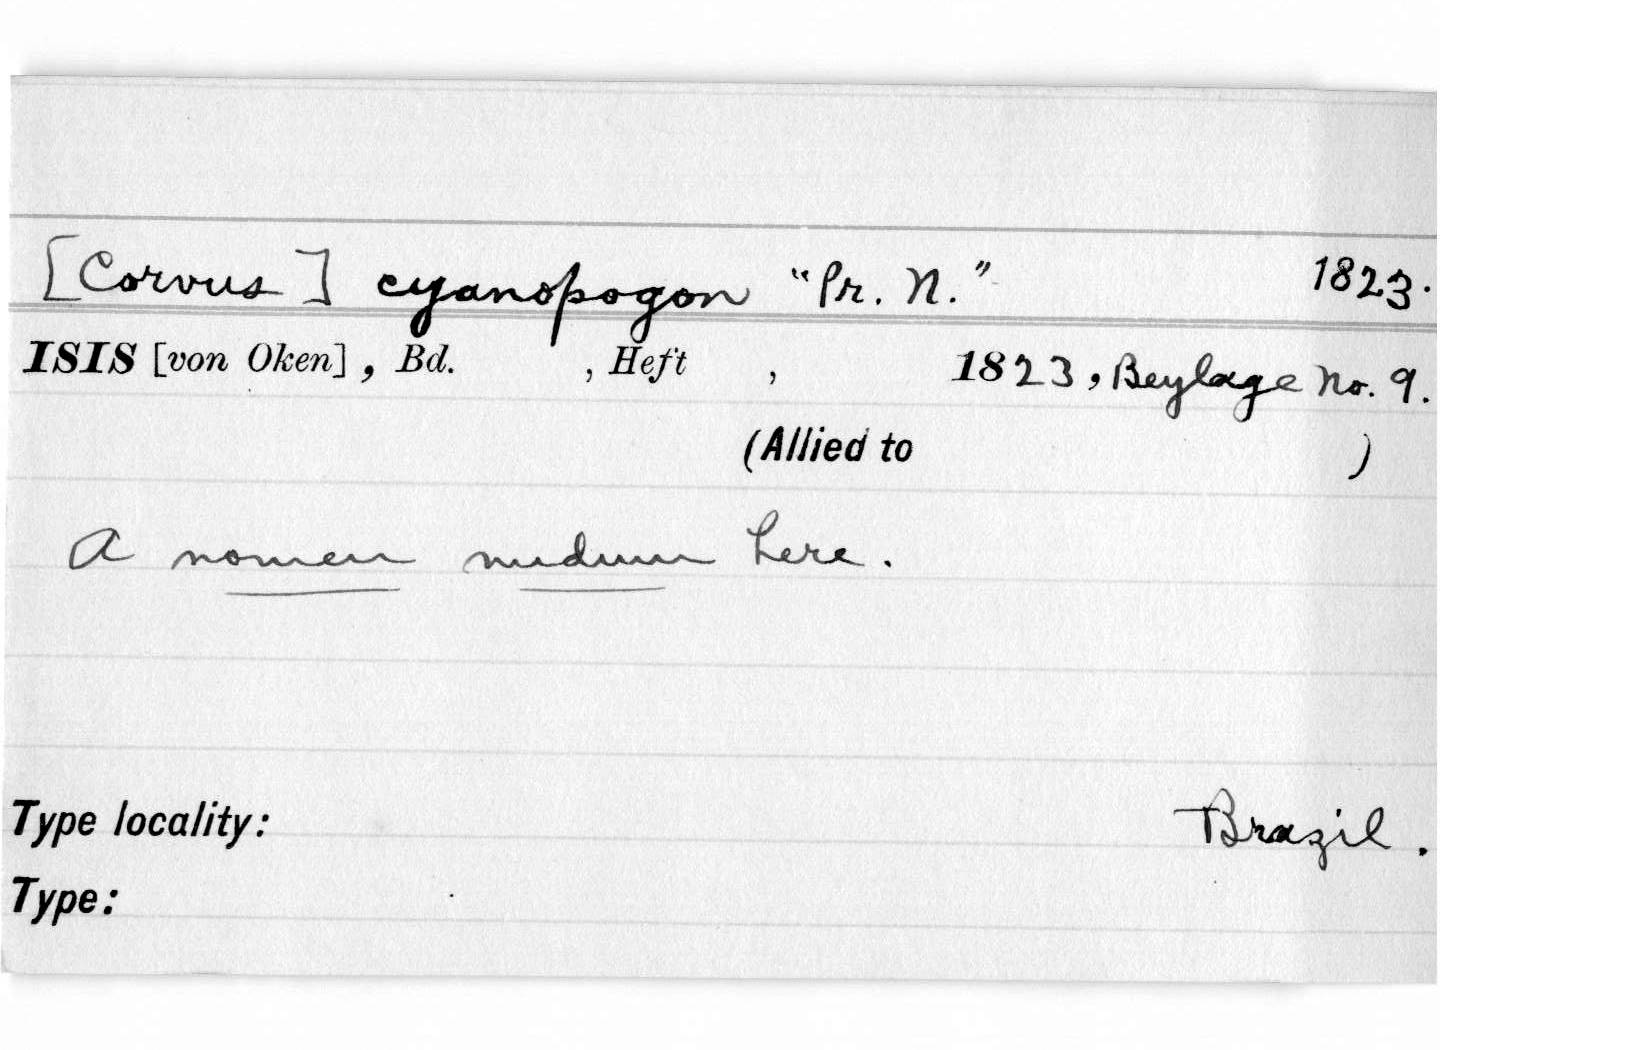 [Corvus] cyanopogon “Pr. N.” 1823.
ISIS [von Oken], Bd. , Heft , 1823, Beylage No. 9.
(Allied to )
A nomen nudum here.
Type locality: Brazil.
Type: